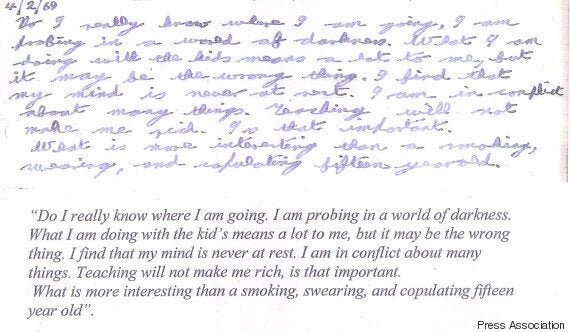 4/2/69
Do I really know where I am going. I am
probing in a world of darkness. What I am
doing with the kids means a lot to me, but
it may be the wrong thing. I find that
my mind is never at rest. I am in conflict
about many things. Teaching will not
make me rich. Is that important.
What is more interesting than a smoking,
swearing, and copulating fifteen year old.
“Do I really know where I am going. I am probing in a world of darkness.
What I am doing with the kid's means a lot to me, but it may be the wrong
thing. I find that my mind is never at rest. I am in conflict about many
things. Teaching will not make me rich, is that important.
What is more interesting than a smoking, swearing, and copulating fifteen
year old”.
Press Association